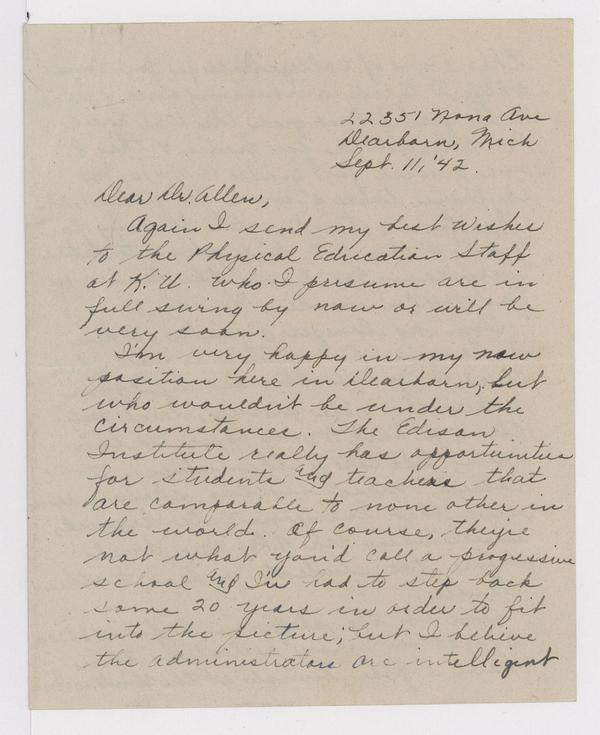 22351 Nona Ave
Dearborn, Mich
Sept. 11, '42.
Dear Dr. Allen,
Again I send my best wishes
to the Physical Education Staff
at K.U. who I presume are in
full swing by now or will be
very soon.
I'm very happy in my new
position here in Dearborn, but
who wouldn't be under the
circumstances. The Edison
Institute really has opportunities
for students and teachers that
are comparable to none other in
the world. Of course, they're
not what you'd call a progressive
school and I've had to step back
some 20 years in order to fit
into the picture; but I believe
the administrators are intelligent